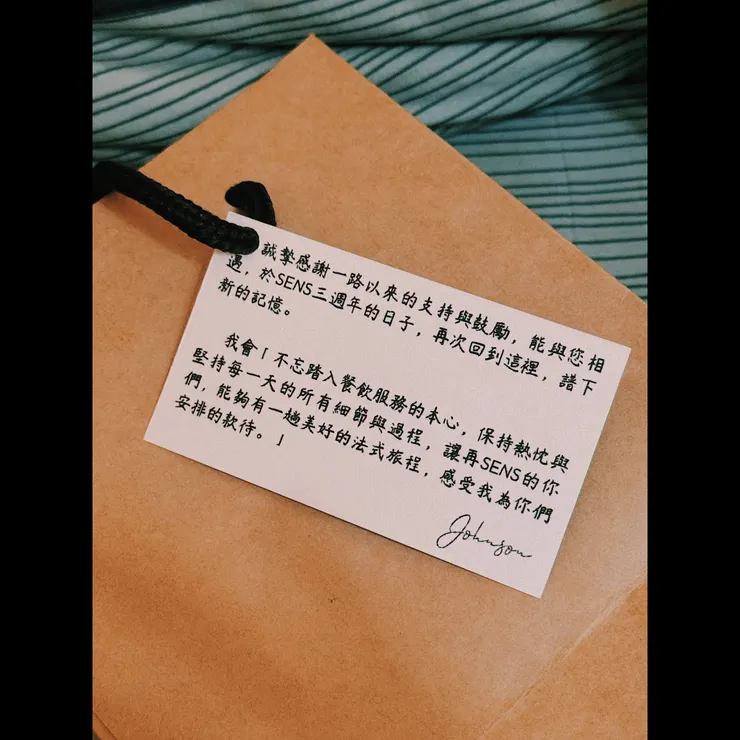 誠摯感謝一路以來的支持與鼓勵，能與您相
遇，於SENS三週年的日子，再次回到這裡，譜下
新的記憶。
我會「不忘踏入餐飲服務的本心，保持熱忱與
堅持每一天的所有細節與過程，讓再SENS的你
們，能夠有一趟美好的法式旅程，感受我為你們
安排的款待。」
Johnson